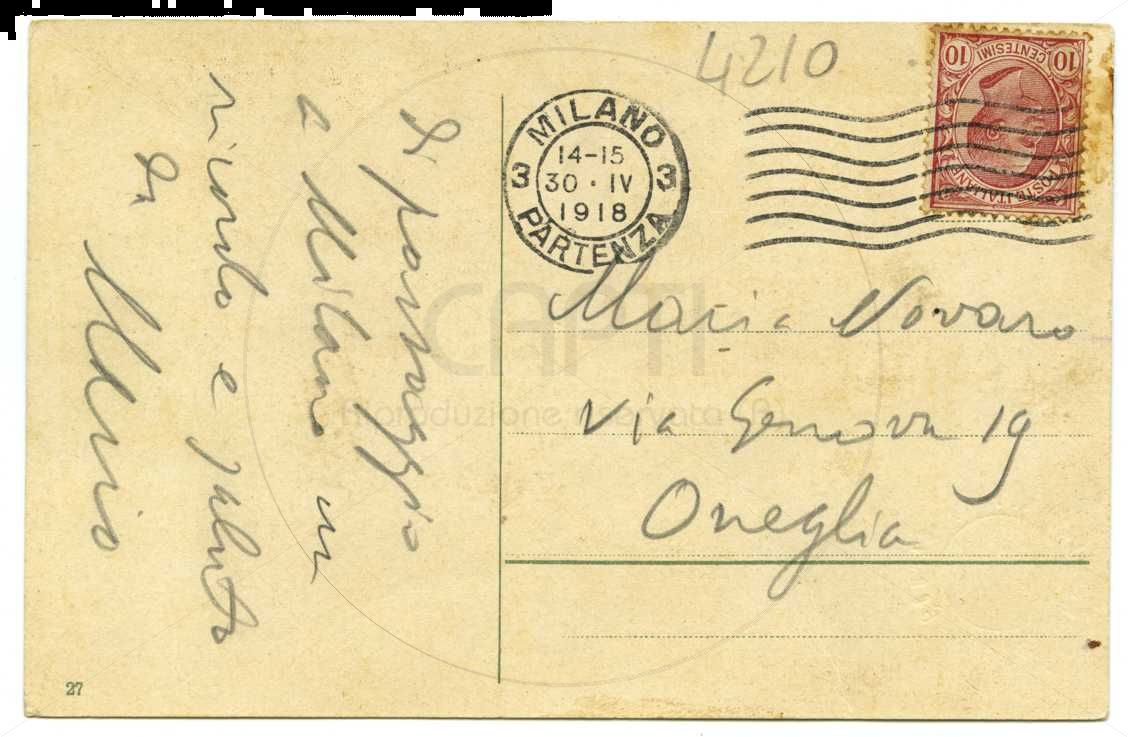 4210
10 CENTESIMI 10
POSTE ITALIANE
MILANO
14-15
3 30·IV 3
1918
PARTENZA
Di passaggio
a Milano un
ricordo e saluto
Da
Mario
Maria Novaro
Via Genova 19
Oneglia
CAPTI
riproduzione riservata
27